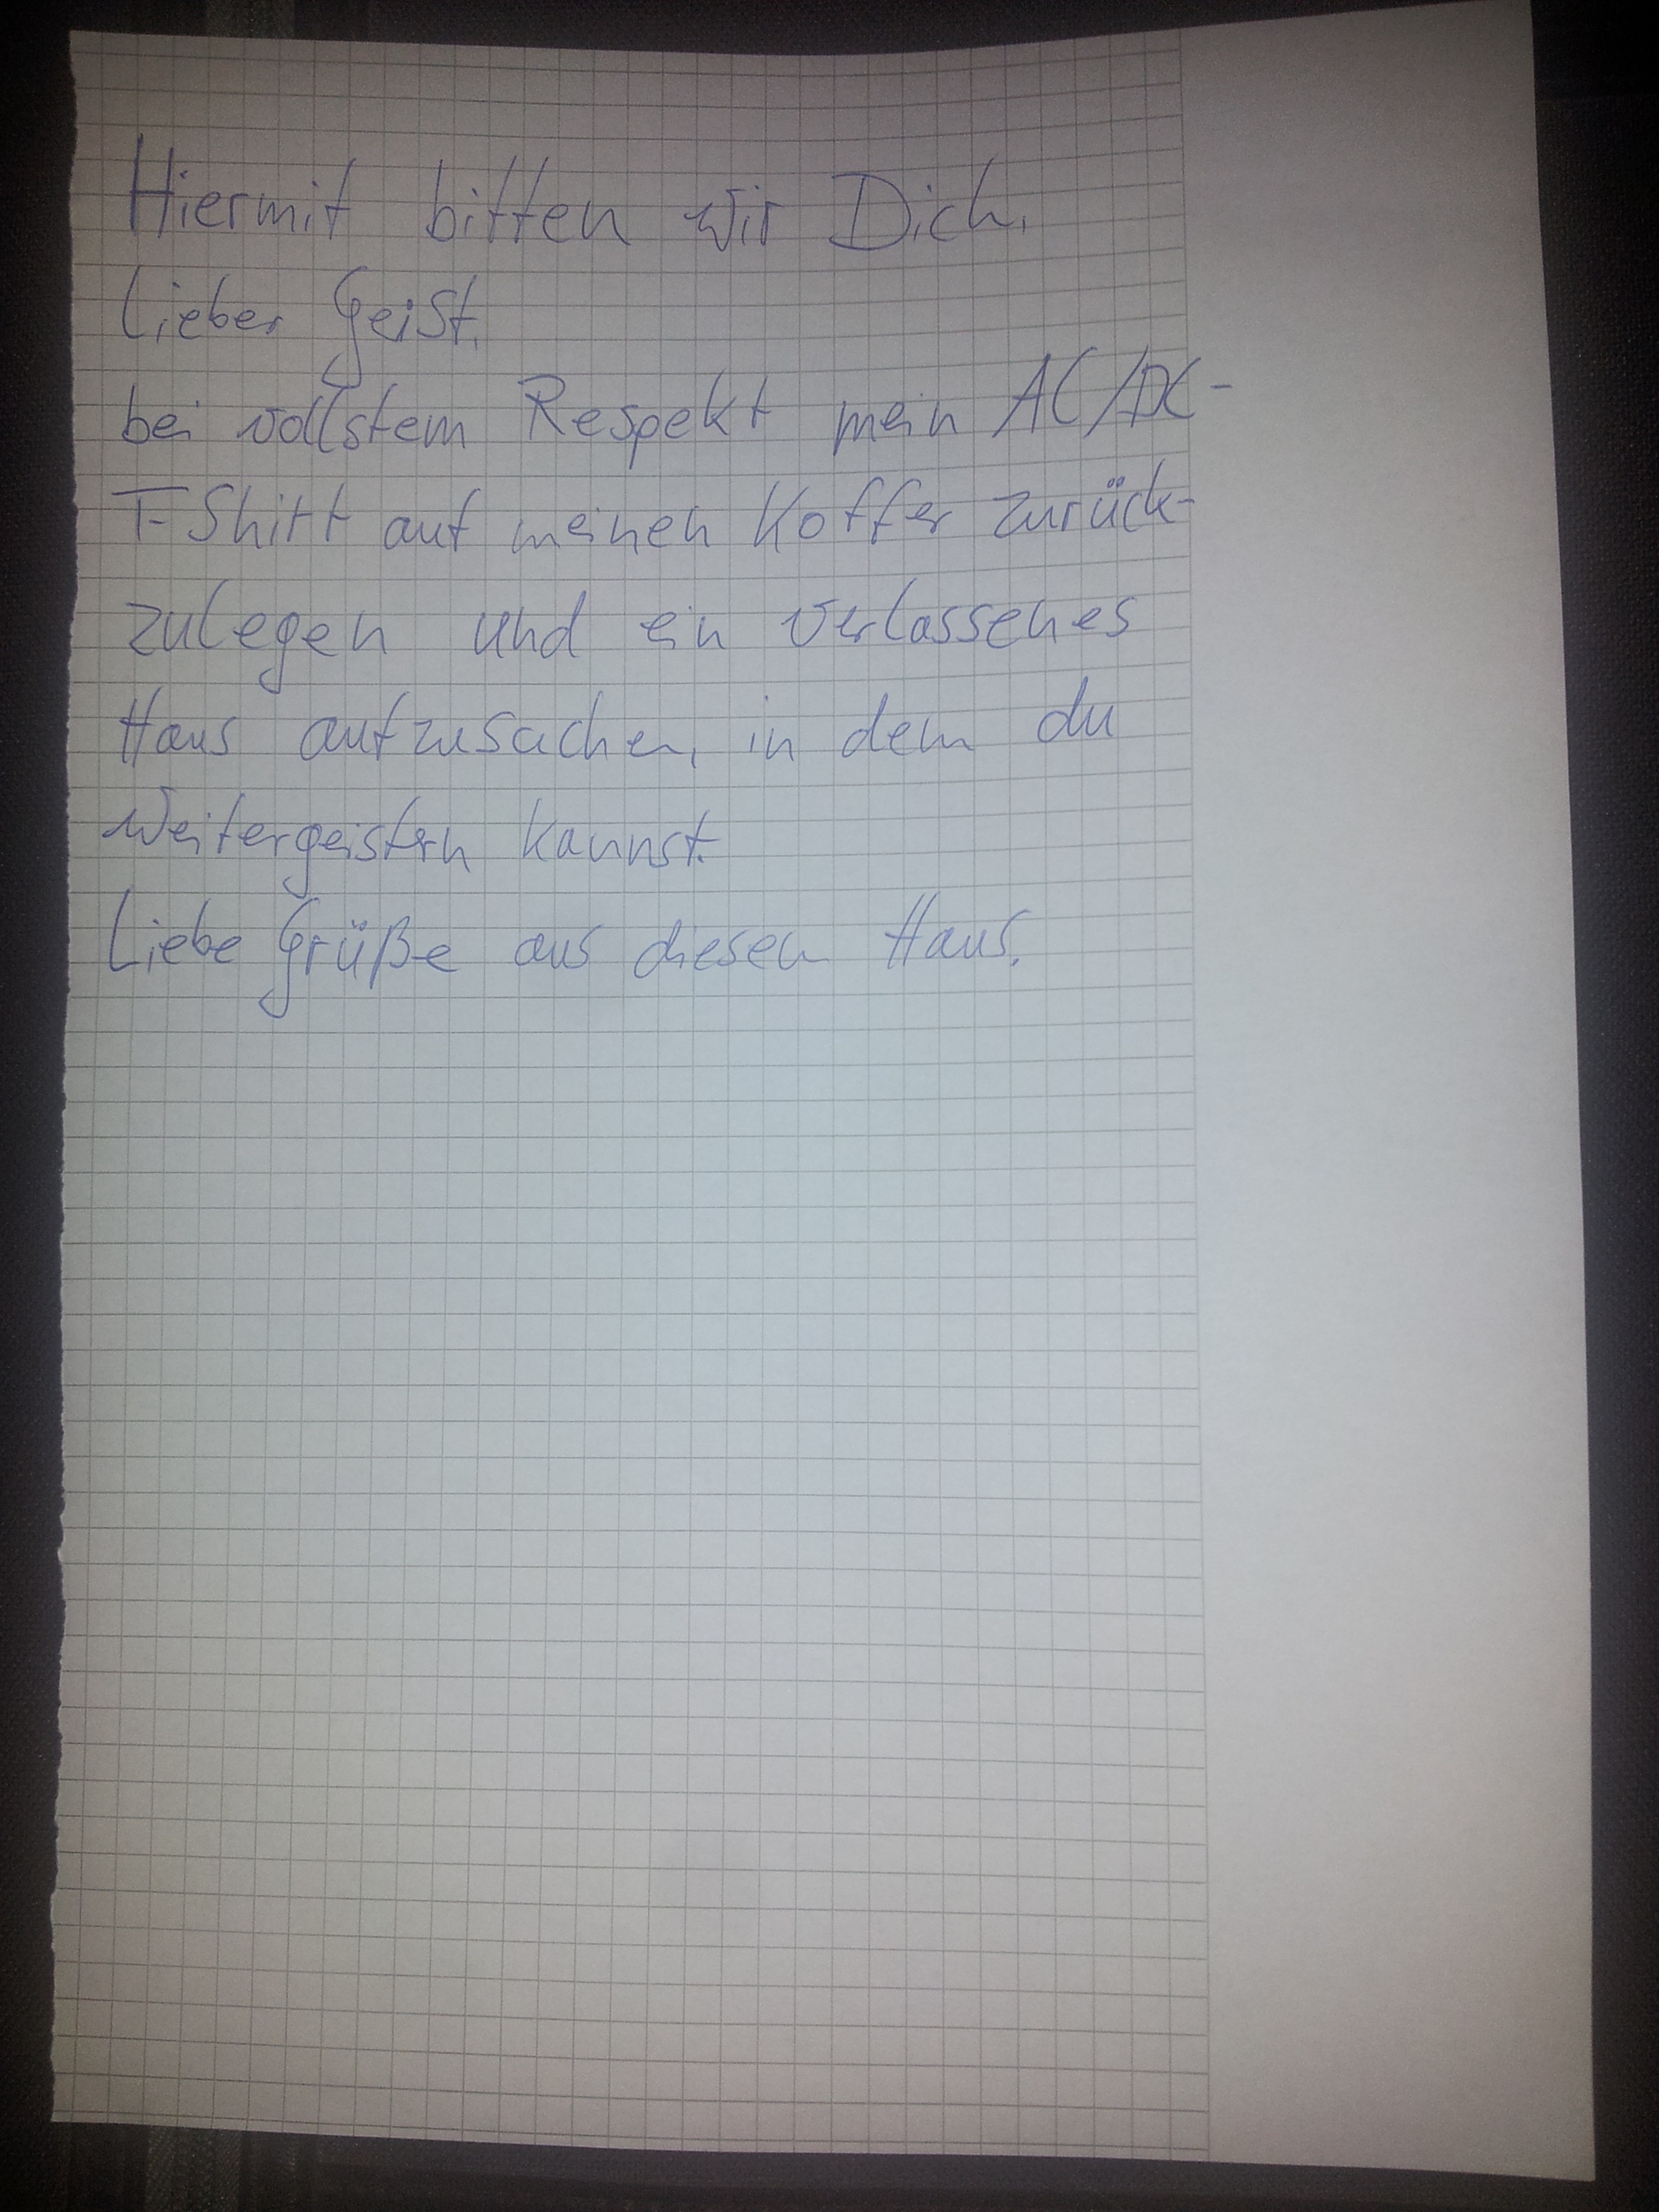 Hiermit bitten wir Dich,
lieber Geist,
bei vollstem Respekt mein AC/DC-
T-Shirt auf meinen Koffer zurück-
zulegen und ein verlassenes
Haus aufzusuchen, in dem du
weitergeistern kannst.
Liebe Grüße aus diesem Haus.